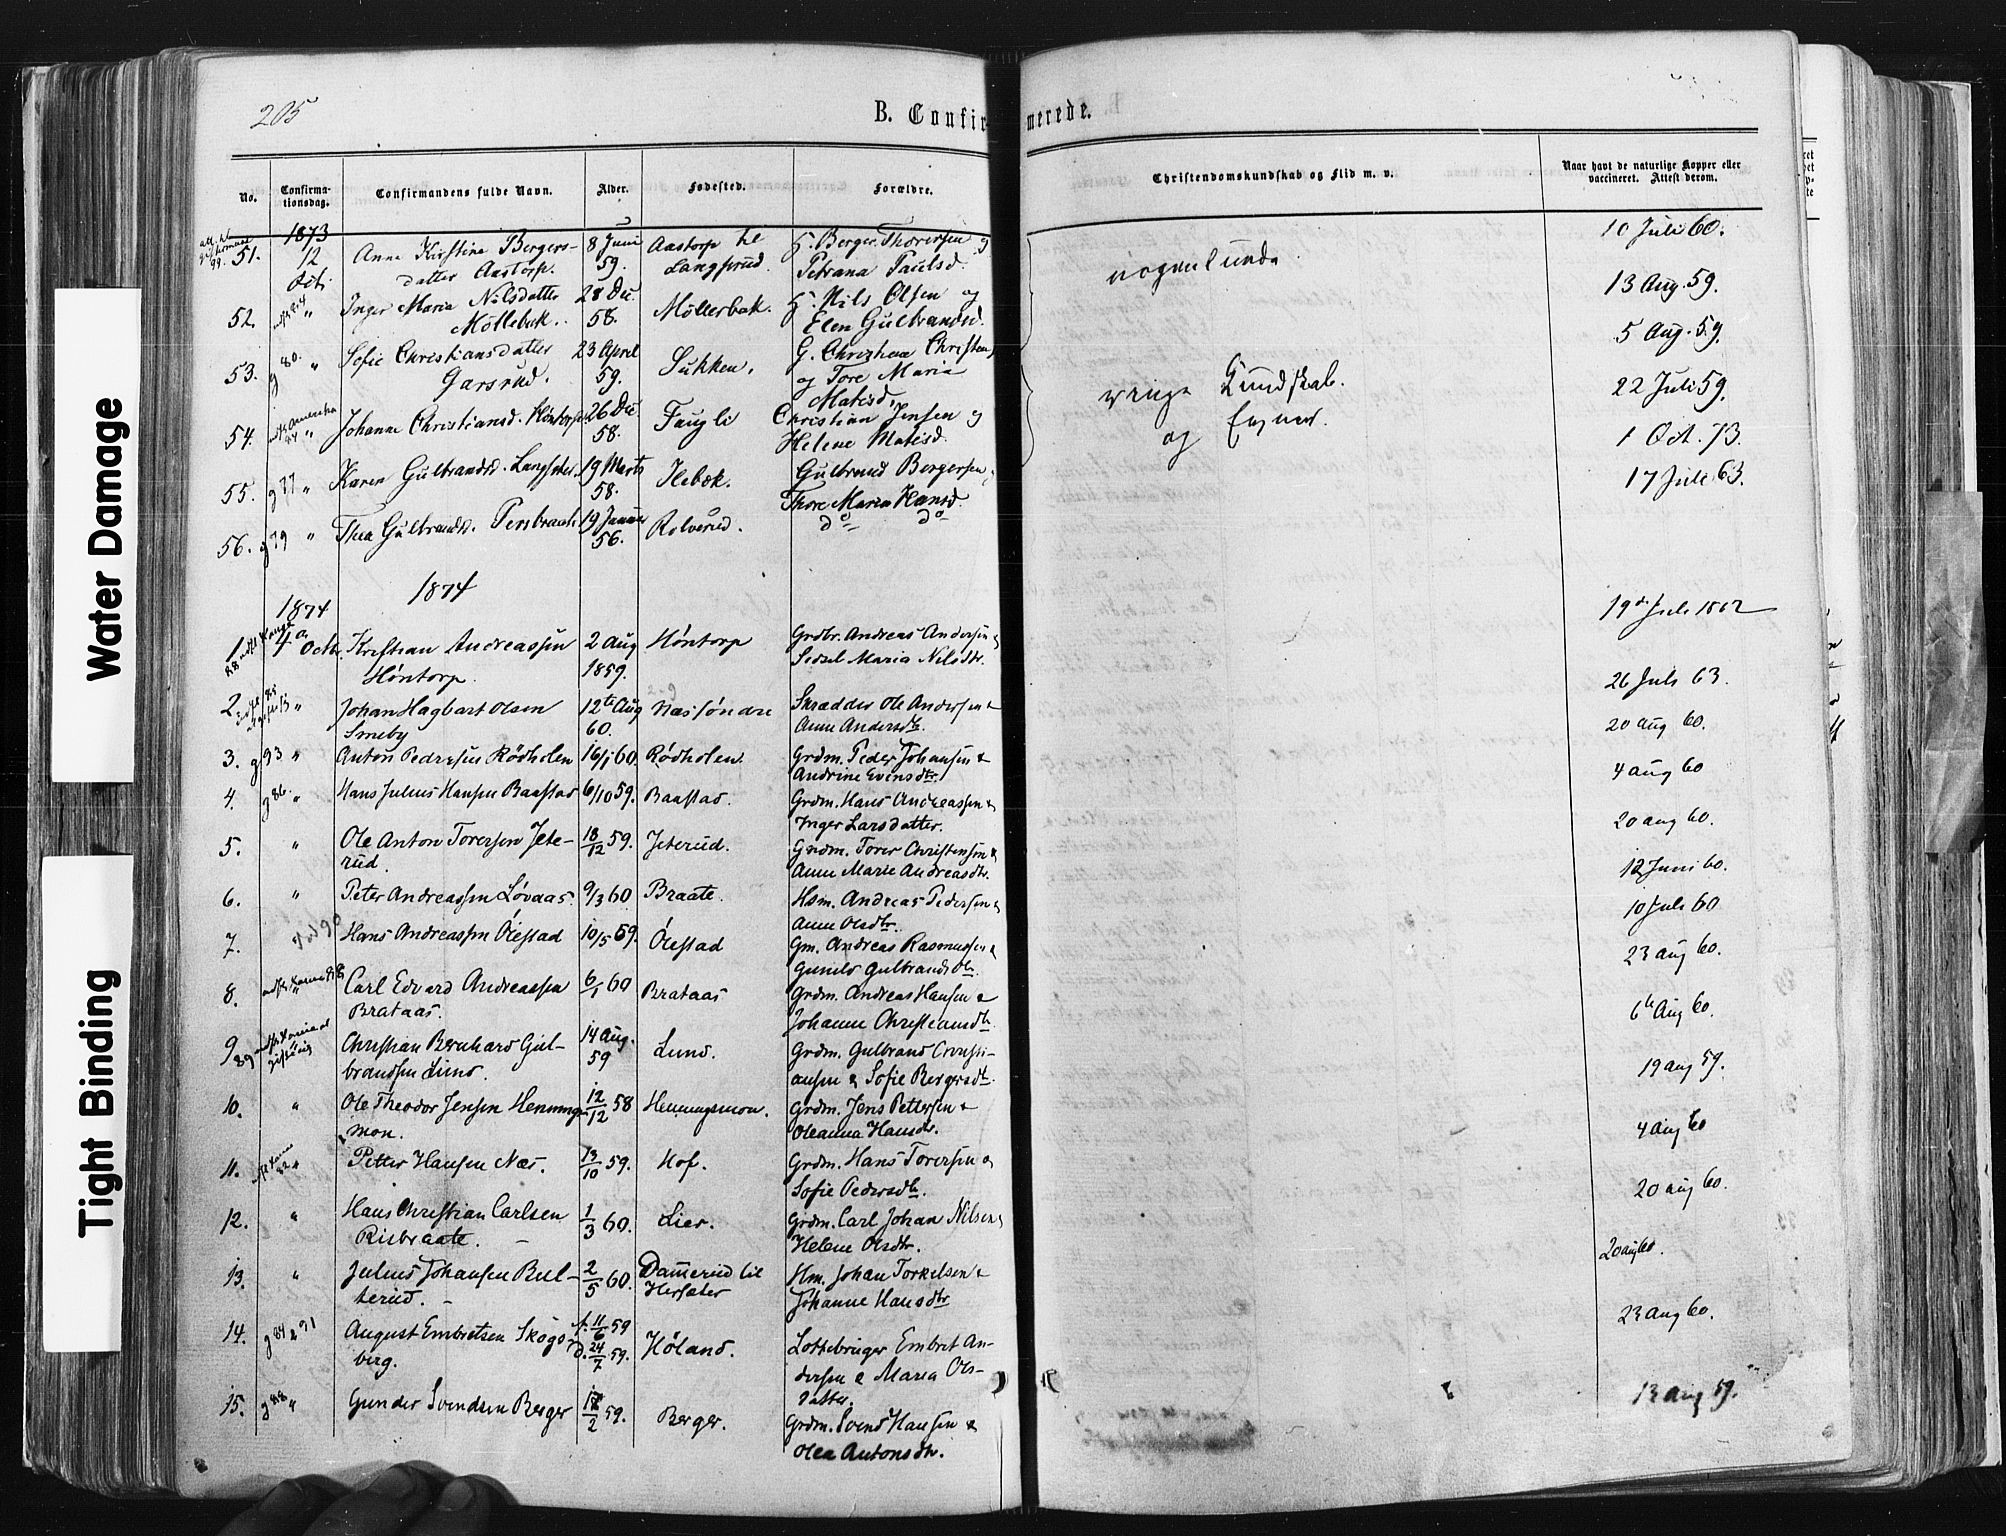 Water Damage
Tight Binding
205
B. Confirmerede.
No.
Confirmationsdag.
Confirmandens fulde Navn.
Alder.
Fødested.
Forældre.
Christendomskundskab og Flid m. v.
Naar havt de naturlige Kopper eller
vaccineret. Attest derom.
1873
51. 12 Anne Kirstine Bergers- 8 Juni Aastorp G. Berger Thoresen og 10 Juli 60.
Oct. datter Aastorp. 59. Langsrud. Petrana Paulsd. nogenlunde
52. " Inger Maria Nilsdatter 28 Dec Møllerbæk. G. Nils Olsen og 13 Aug. 59.
Møllebæk. 58. Elen Gulbrandsd.
53. g 80. " Sofie Christiansdatter 23 April Sukken. G. Christian Christens 5 Aug. 59.
Garsrud. 59. og Tore Maria
Matisd.
ringe Kundskab.
og Evner.
54. Amerika " Johanne Christiansd. 26 Dec Faugli Christian Jensen og 22 Juli 59.
58. Helene Matisd.
55. g 77 " Karen Gulbrandsd. 19 Marts Ilebæk. Gulbrand Bergersen 1 Oct. 73.
58. Thore Maria Hansd.
56. g 79 " Thea Gulbrandsd. 19 Januar Rolverud. do do 17 Juli 63.
56.
1874
1874
1. 4 Octbr. Kristian Andreassen 2 Aug Høntorp Grdbr. Andreas Andersen & 19de Juli 1862
Høntorp. 1859. Sidsel Maria Nilsdtr.
2. " Johan Hagbart Olsen 12te Aug Næs søndre Skrædder Ole Andersen & 26 Juli 63.
Smeby 60. Anne Andersdtr.
3. g 93 " Anton Pedersen Rødholen 16/1 60. Rødholen. Grdm. Peder Johansen & 20 aug 60.
Andrine Evensdtr.
4. g 86. " Hans Julius Hansen Baastad 6/10 59. Baastad. Grdm. Hans Andreassen & 4 aug 60
Inger Larsdatter.
5. " Ole Anton Toresen Jete- 18/12 59. Jeterud. Grdm. Torer Christensen & 20 aug 60.
rud. Anne Marie Andreasdtr.
6. " Peter Andreassen Løvaas. 9/3 60 Braate. Hsm. Andreas Pedersen & 12 Juni 60.
Anne Olsdtr.
7. " Hans Andreassen Ølestad 10/5 59. Ølestad Gm. Andreas Rasmussen & 10 Juli 60
Gunild Gulbrandsdtr.
8. " Carl Edvard Andreassen 6/1 60 Brataas Grdm. Andreas Hansen & 23 aug 60.
Brataas. Johanne Christiansdtr.
9. 89 Christian Bernhard Gul- 14 Aug. Lund. Grdm. Gulbrand Christi- 6te Aug 60.
brandsen Lund. 59 ansen & Sofie Bergersdtr.
10. " Ole Theodor Jensen Hennings- 12/12 58 Henningsmon. Grdm. Jens Pettersen & 19 aug 59.
mon. Oleanna Hansdtr.
11. " Petter Hansen Næs. 13/10 59. Hof. Grdm. Hans Toresen & 4 aug 60
Sofie Pedersdtr.
12. " Hans Christian Carlsen 1/3 60. Lier. Grdm. Carl Johan Nilsen & 20 aug 60.
Risbraate. Helene Olsdtr.
13. " Julius Johansen Bul- 2/5 60. Dammerud til Hm. Johan Torkelsen & 20 aug 60.
terud. Hersæter Johanne Hansdtr
14. g 84 91 August Embretsen Skogs- f. 11/6 59 Høland. Lottebruger Embret An- 23 aug 60.
berg. D. 24/7 59. dersen & Maria Ols-
datter.
15. g 88 " Gunder Svendsen Berger 12/2 59. Berger. Grdm. Svend Hansen & 13 aug 59.
Olea Antonsdtr.